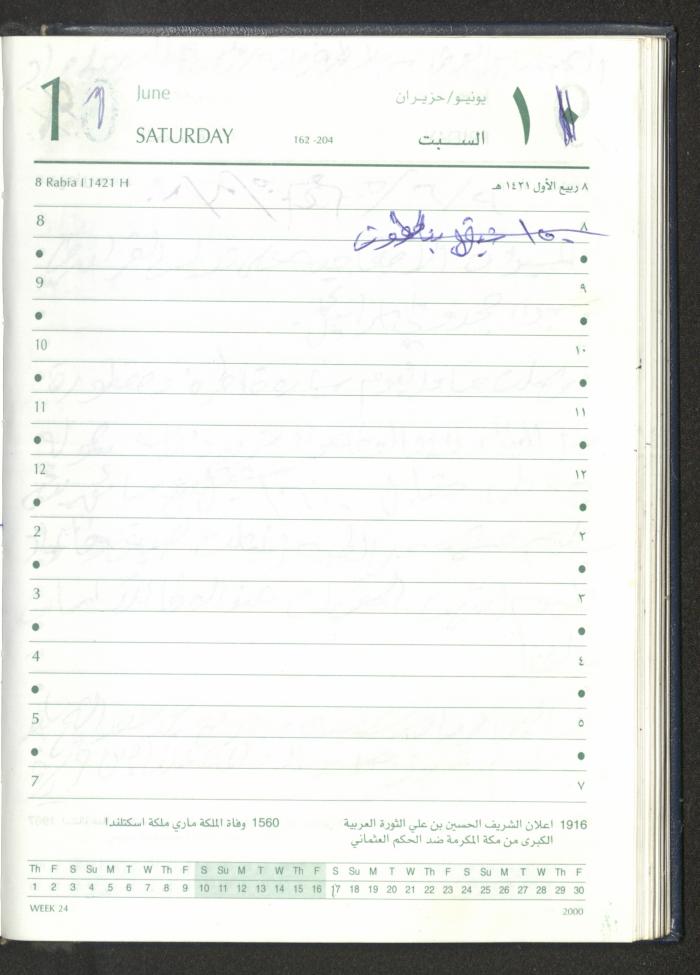 10 June يونيو/حزيران ١٠
SATURDAY 162 -204 السبت
8 Rabia I 1421 H ٨ ربيع الأول ١٤٢١ هـ
8 ٨
9 ٩
10 ١٠
11 ١١
12 ١٢
2 ٢
3 ٣
4 ٤
5 ٥
7 ٧
1916 اعلان الشريف الحسين بن علي الثورة العربية 1560 وفاة الملكة ماري ملكة اسكتلندا
الكبرى من مكة المكرمة ضد الحكم العثماني
Th F S Su M T W Th F S Su M T W Th F S Su M T W Th F S Su M T W Th F
1 2 3 4 5 6 7 8 9 10 11 12 13 14 15 16 17 18 19 20 21 22 23 24 25 26 27 28 29 30
WEEK 24 2000